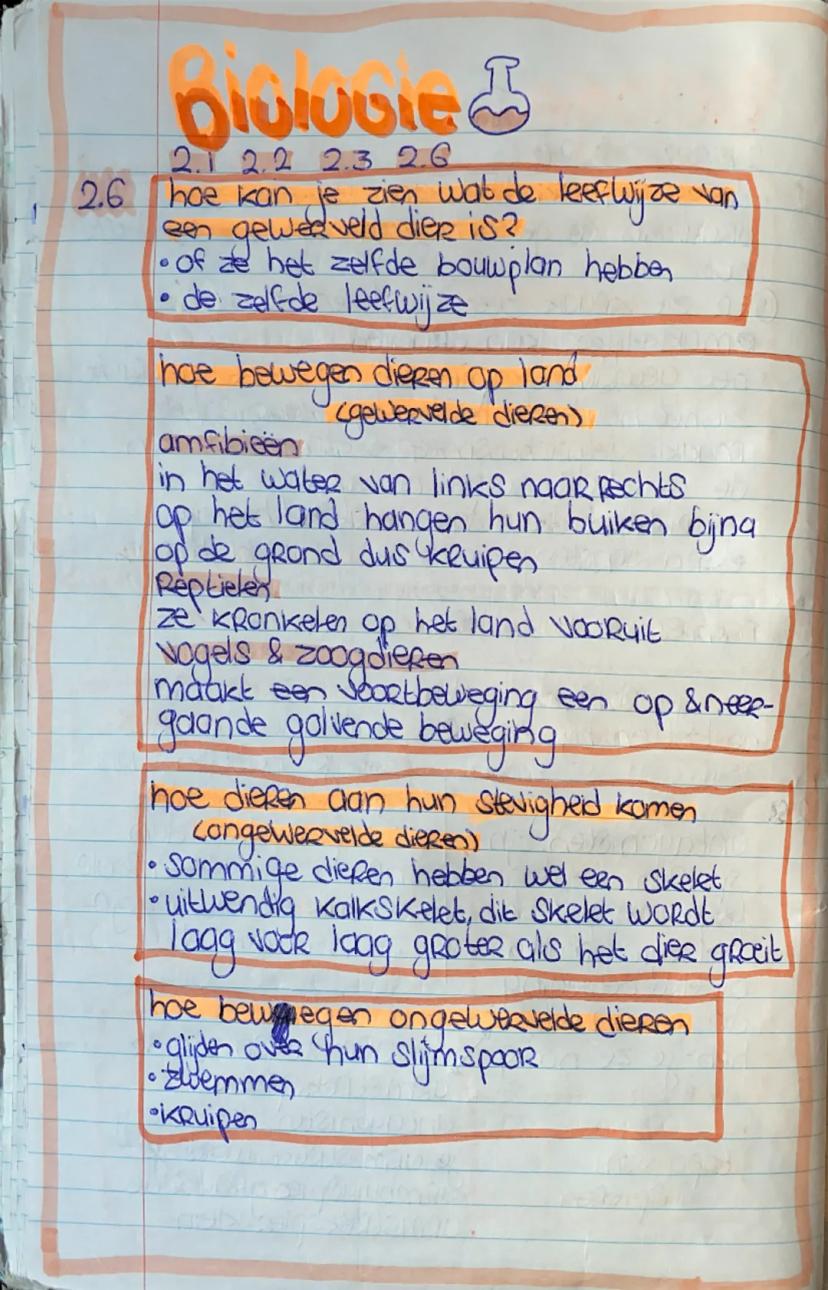 Biologie
2.1 2.2 2.3 2.6
2.6 hoe kan je zien wat de leefwijze van
een gewerveld dier is?
• of ze het zelfde bouwplan hebben
• de zelfde leefwijze
hoe bewegen dieren op land
(gewervelde dieren)
amfibieën
in het water van links naar rechts
op het land hangen hun buiken bijna
op de grond dus kruipen
Reptielen
ze kronkelen op het land vooruit
vogels & zoogdieren
maakt een voortbeweging een op & neer-
gaande golvende beweging
hoe dieren aan hun stevigheid komen
(ongewervelde dieren)
• sommige dieren hebben wel een skelet
• uitwendig kalkskelet, dit skelet wordt
laag voor laag groter als het dier groeit
hoe bewegen ongewervelde dieren
• glijden over hun slijmspoor
• zwemmen
• kruipen